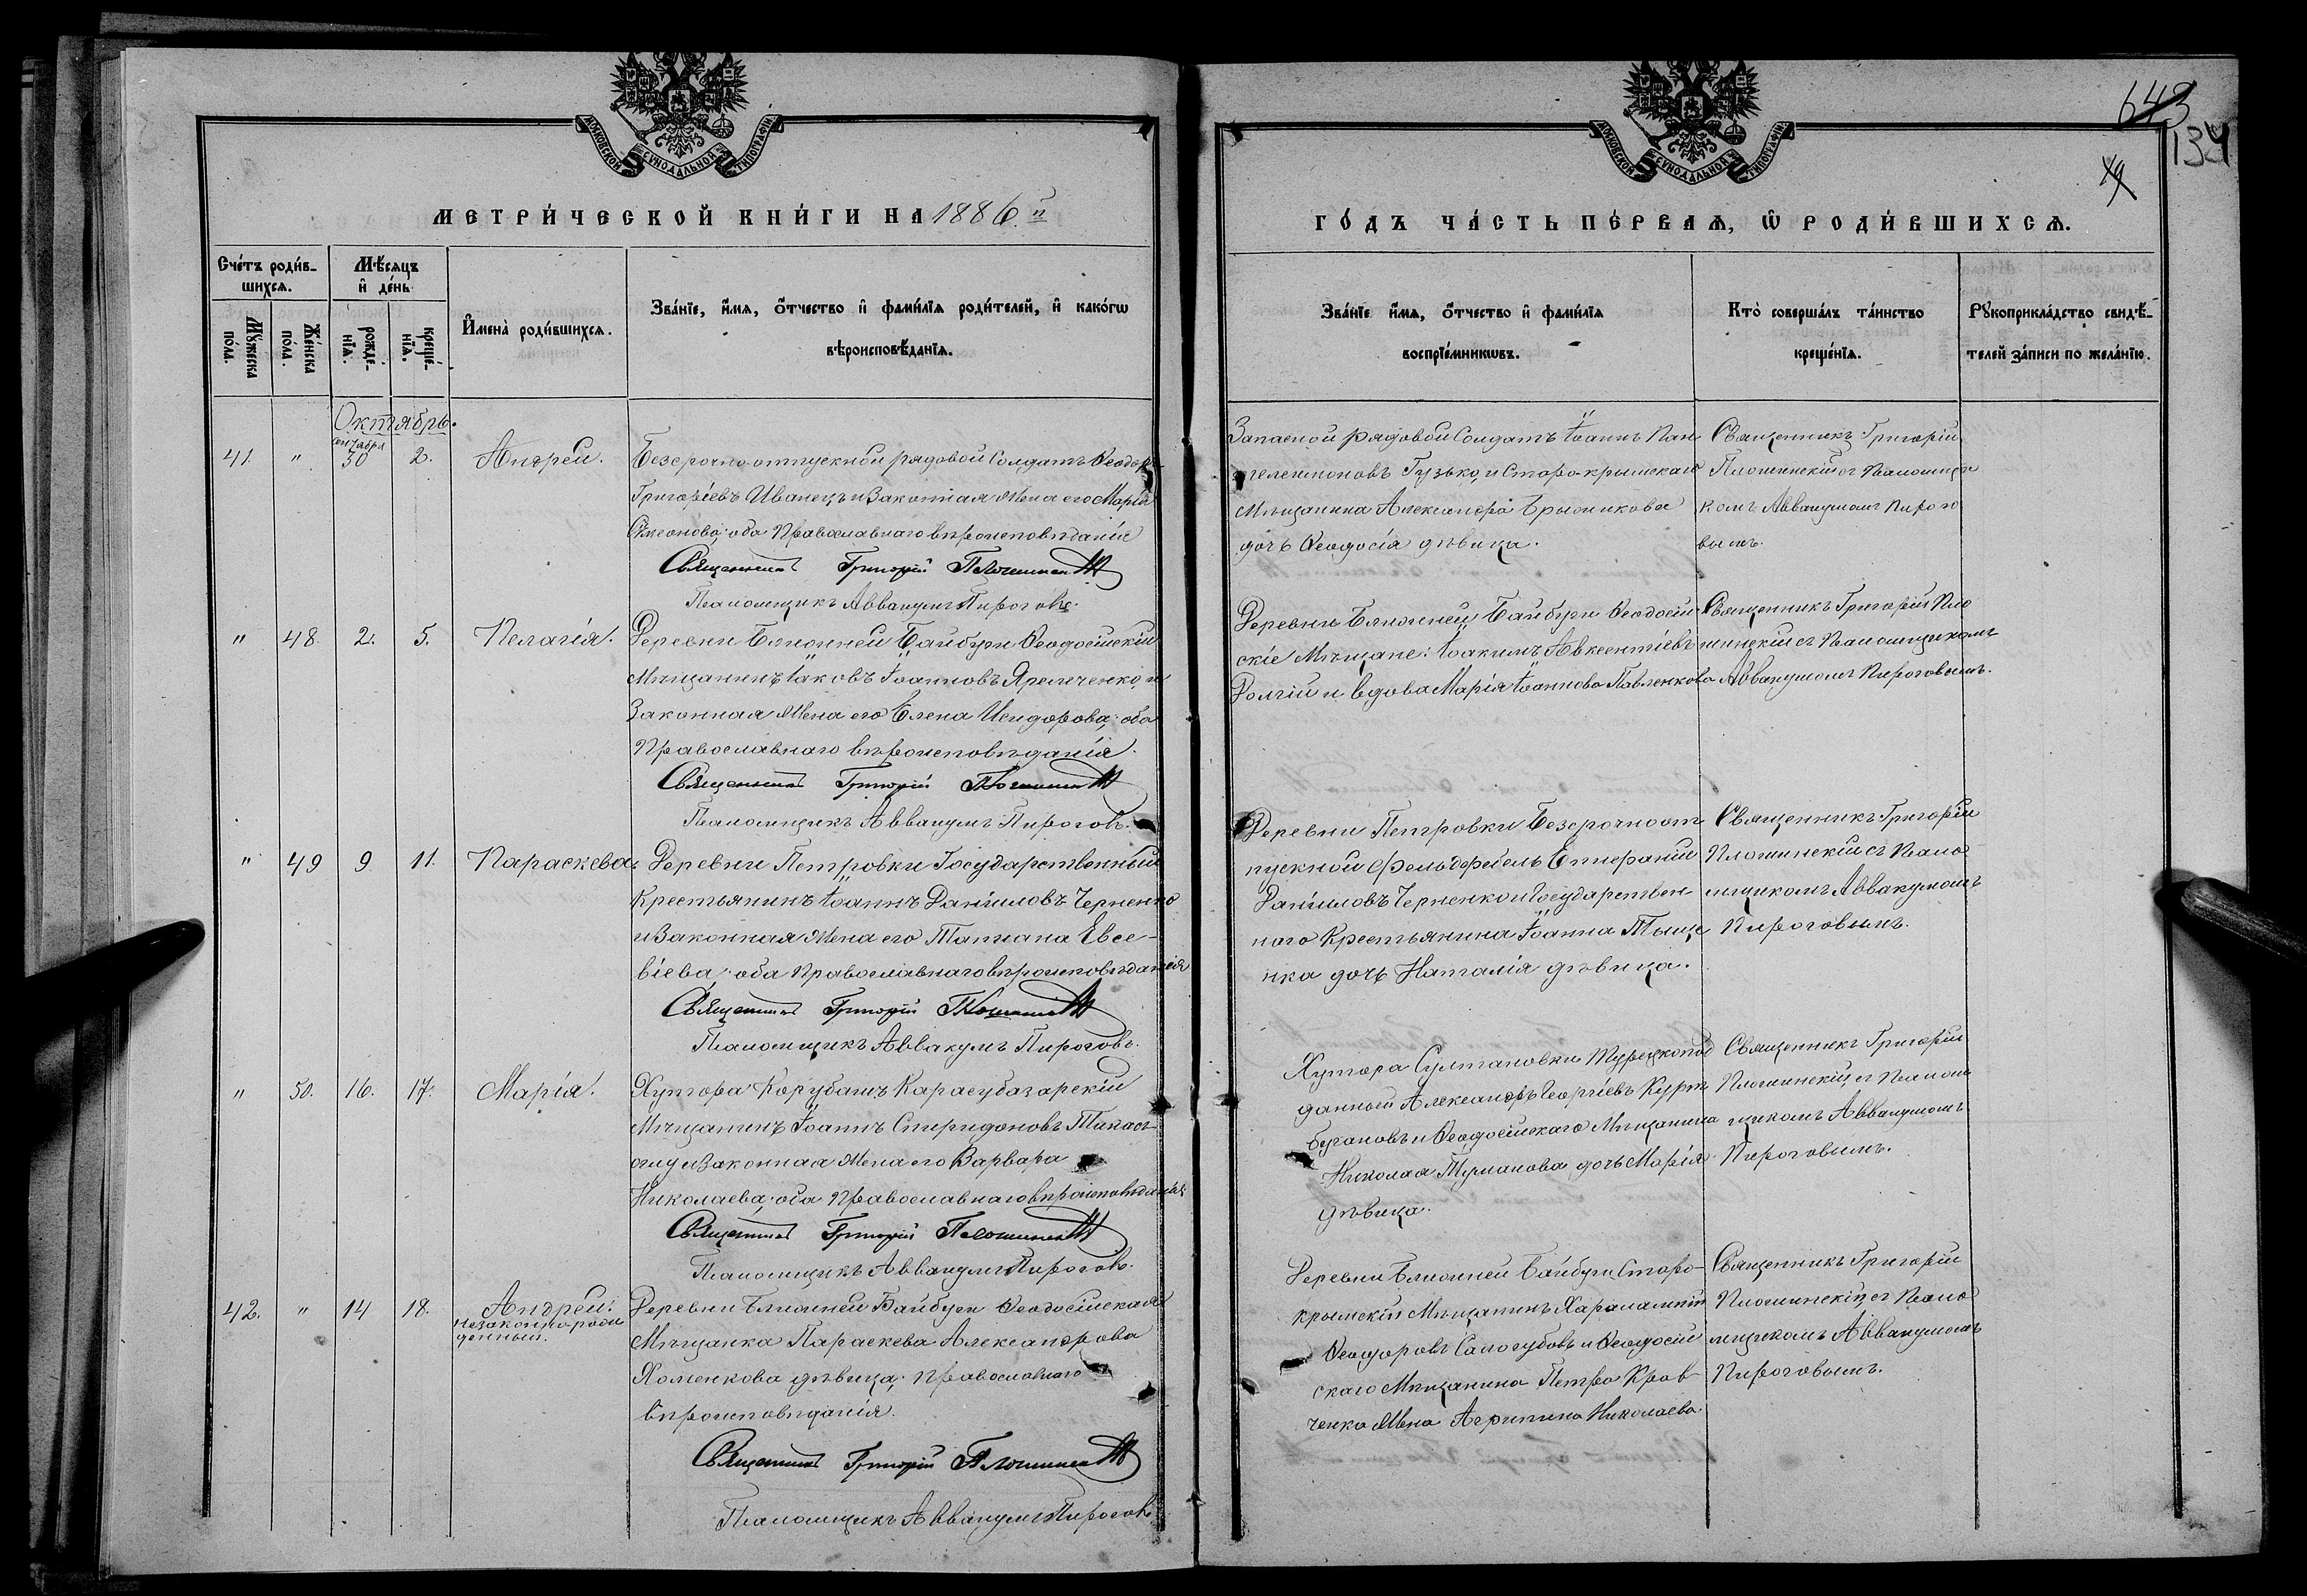 МОСКОВСКОЙ СУНОДАЛЬНОЙ ТИПОГРАФІИ
МЕТРИ́ЧЕСКОЙ КНИ́ГИ НА 1886.й
Сче́тъ роди́в-
шихсѧ.
Мѣ́сѧцъ
и҆ де́нь
Мꙋ́жеска
пола.
Же́нска
по́ла.
рожде́-
нїѧ.
креще́-
нїѧ.
И҆мена̀ роди́вшихсѧ.
Зва́нїе, и҆́мѧ, ѻ҆́тчество и҆ фами́лїѧ роди́телей, и҆ како́гѡ
вѣроисповѣ́данїѧ.
Октябрь.
41. " сентября 30 2. Андрей. Безсрочно-отпускной рядовой Солдатъ Ѳеодоръ
Григоріевъ Иванецъ и Законная Жена его Марія
Симеонова; оба Православнаго вѣроисповѣданія
Священникъ Григорій
Псаломщикъ Аввакумъ Пироговъ.
" 48. 2. 5. Пелагія. Деревни Ближней Байбуги Ѳеодосійскій
Мѣщанинъ Іаковъ Іоанновъ Яремченко, и
Законная Жена его Елена Исидорова; оба
Православнаго вѣроисповѣданія.
Священникъ Григорій
Псаломщикъ Аввакумъ Пироговъ.
" 49 9. 11. Параскева. Деревни Петровки Государственный
Крестьянинъ Іоаннъ Даніиловъ Черненко
и Законная Жена его Татіана Евсе-
віева; оба Православнаго вѣроисповѣданія
Священникъ Григорій
Псаломщикъ Аввакумъ Пироговъ.
" 50. 16. 17. Марія. Хутора Корубашъ Карасубазарскій
Мѣщанинъ Іоаннъ Спиридоновъ
оглу и Законная Жена его Варвара
Николаева; оба Православнаго вѣроисповѣданія:
Священникъ Григорій
Псаломщикъ Аввакумъ Пироговъ.
42. " 14 18. Андрей. Деревни Ближней Байбуги Ѳеодосійская
незаконно-рож
денный.
Мѣщанка Параскева Александрова
Хоменкова дѣвица; православнаго
вѣроисповѣданія.
Священникъ Григорій
Псаломщикъ Аввакумъ Пироговъ
МОСКОВСКОЙ СУНОДАЛЬНОЙ ТИПОГРАФІИ
643
134
ГО́ДЪ ЧА́СТЬ ПЕ́РВАѦ, Ѡ҆ РОДИ́ВШИХСѦ.
Зва́нїе и҆́мѧ, ѻ҆́тчество и҆ фами́лїѧ
воспрїе́мникѡвъ.
Кто̀ соверша́лъ та́инство
креще́нїѧ.
Рꙋкоприкла́дство свидѣ́-
телей за́писи по жела́нїю.
Запасной рядовой Солдатъ Іоаннъ Пан
телеимоновъ Гузько, и Старо-крымскаго
Мѣщанина Александра
дочь Ѳеодосія дѣвица.
Священникъ Григорій
Плошинскій съ Псаломщи
комъ Аввакумомъ Пирого
вымъ.
Деревни Ближней Байбуги Ѳеодосій
скіе Мѣщане: Іоакимъ Авксентіевъ
Долгій и вдова Марія Іоаннова Павленкова
Священникъ Григорій Пло
шинскій съ Псаломщикомъ
Аввакумомъ Пироговымъ.
Деревни Петровки Безсрочноот
пускной Фельдфебель Епифаній
Даніиловъ Черненко и Государствен
наго Крестьянина Іоанна Тыще
нка дочь Наталія дѣвица.
Священникъ Григорій
Плошинскій съ Псало
мщикомъ Аввакумомъ
Пироговымъ.
Хутора Султановки Турецкопод
данный Александръ Георгіевъ Курт
бугановъ и Ѳеодосійскаго Мѣщанина
Николая Туманова дочь Марія
дѣвица.
Священникъ Григорій
Плошинскій, съ Псалом
щикомъ Аввакумомъ
Пироговымъ.
Деревни Ближней Байбуги Старо-
крымскій Мѣщанинъ Харалампій
Ѳеодоровъ и Ѳеодосій
скаго Мѣщанина Петра Крав
ченка Жена Агрипина Николаева.
Священникъ Григорій
Плошинскій, съ Псало
мщикомъ Аввакумомъ
Пироговымъ.